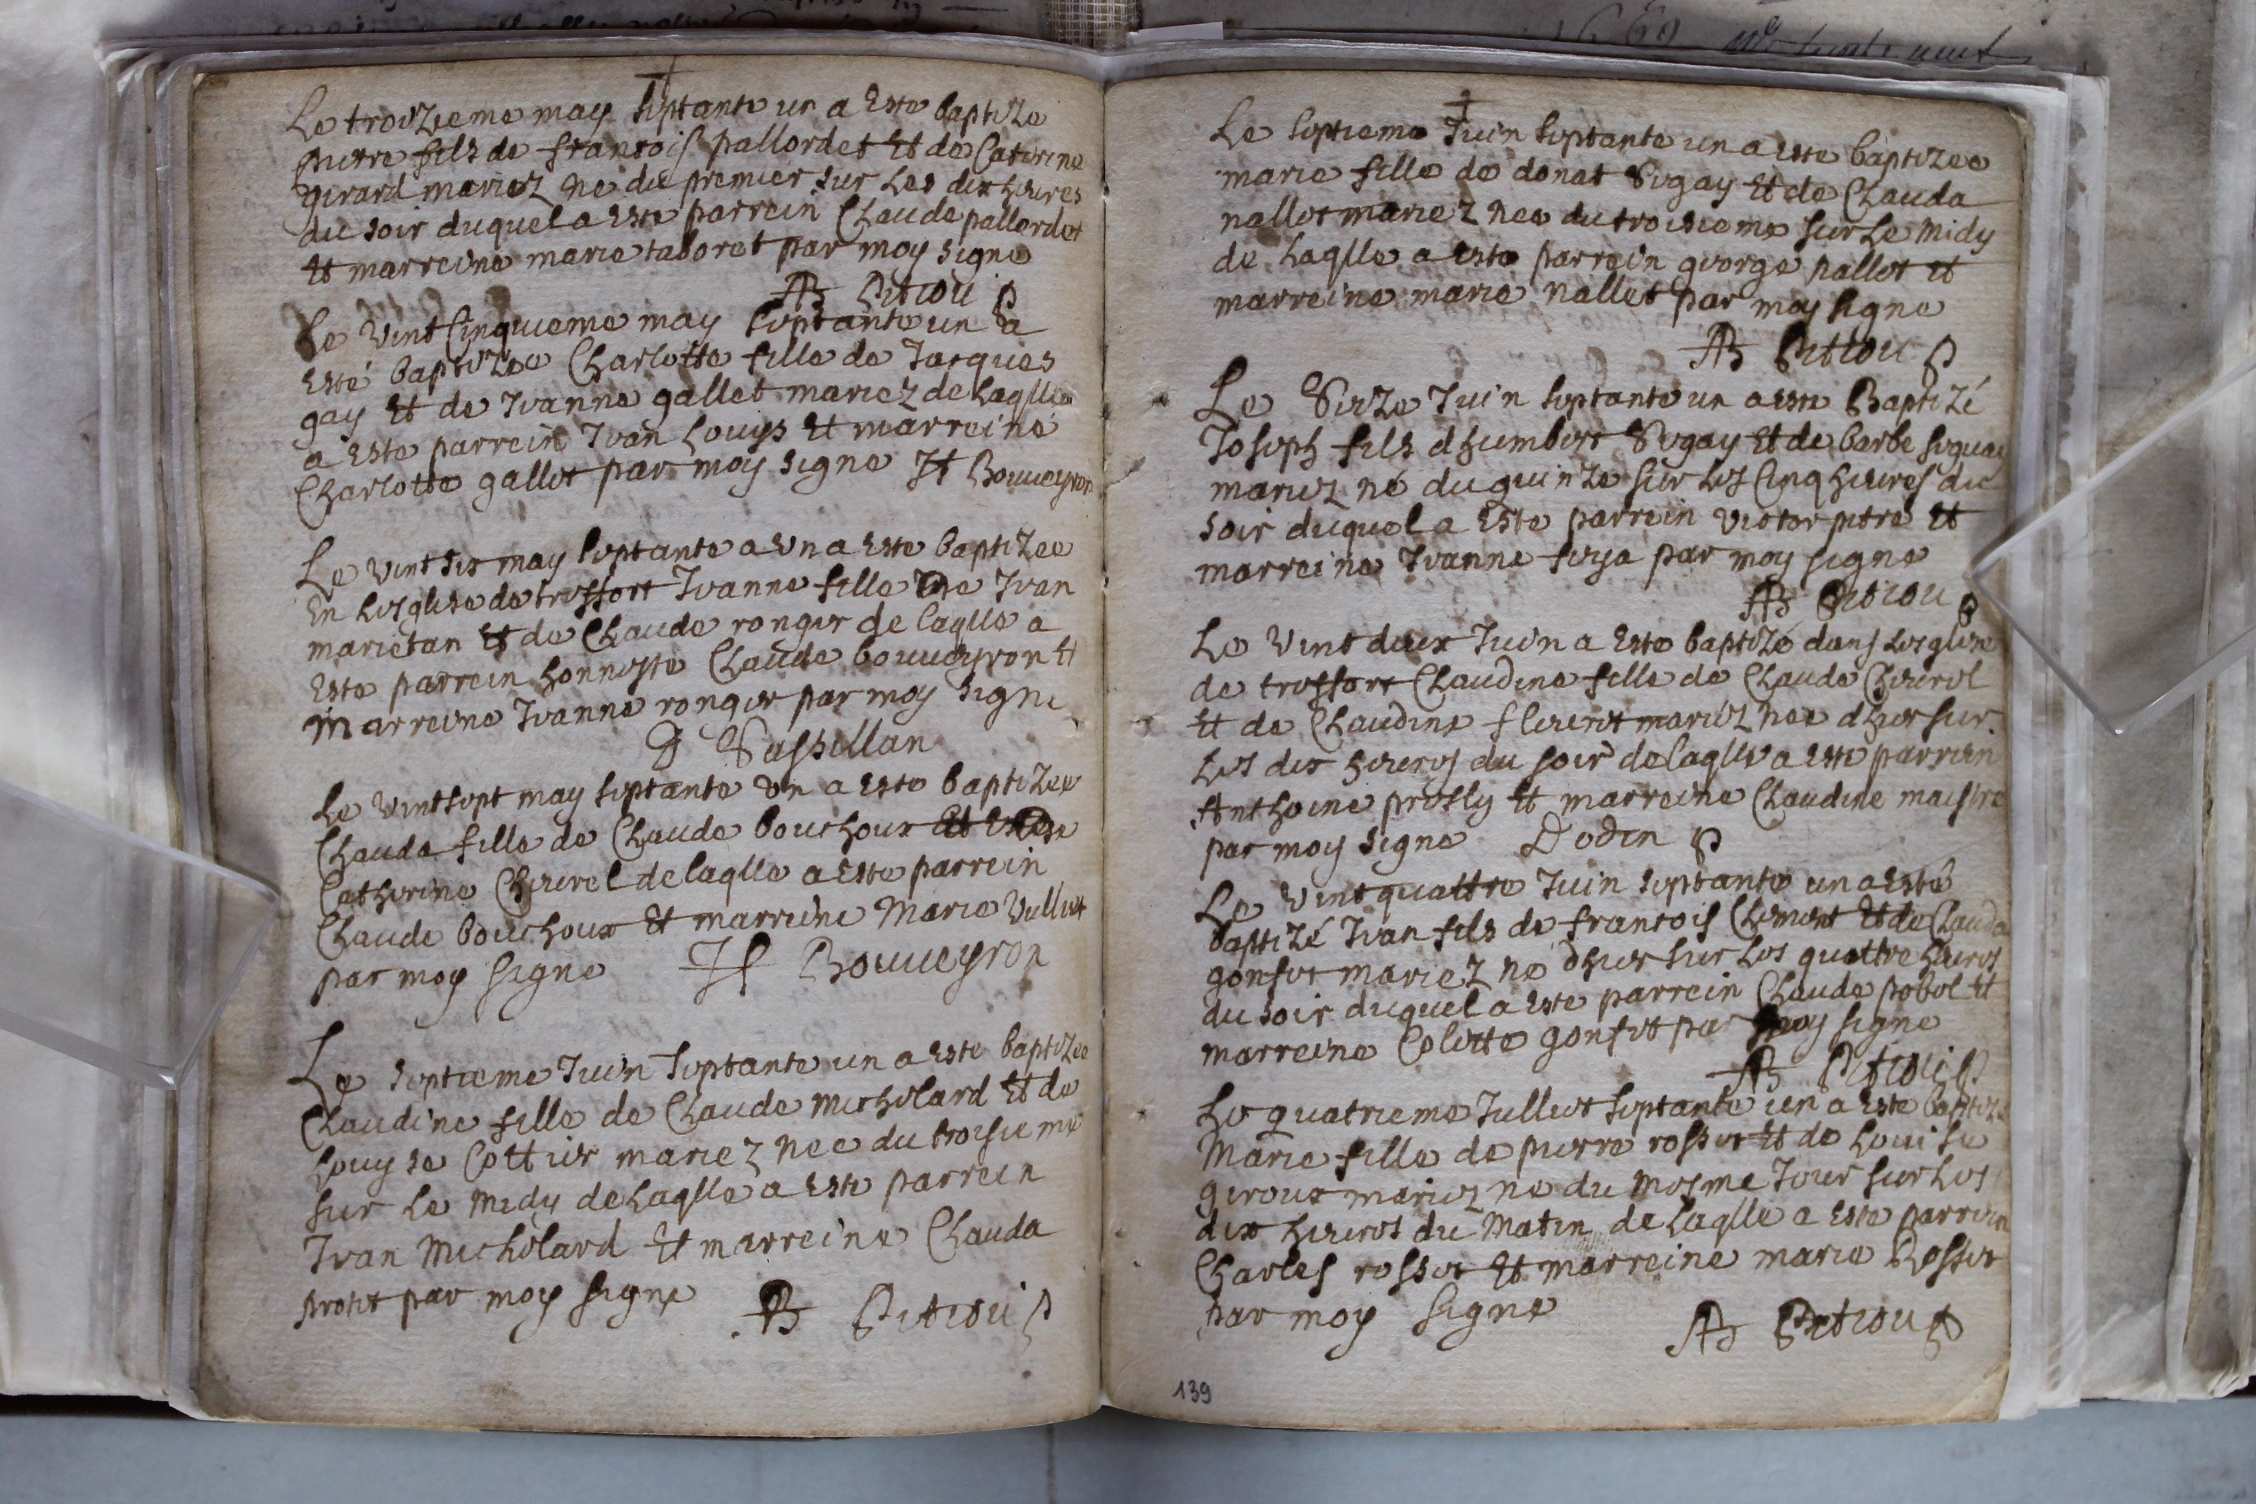 Le troizieme may septante un a este baptize
pierre fils de francois pallordet et de Caterine
girard mariez ne du premier sur les dix heures
du soir duquel a este parrein Claude pallordet
et marreine marie taboret par moy signe
AB Petiou
Le vint cinquieme may septante un a
esté baptizee Charlotte fille de Jacques
gay et de Jeanne gallet mariez de laqlle
a este parrein Jean Louys et marreine
Charlotte gallet par moy signe H Bouueyron
Le vint six may septante a un a este baptizee
en lesglise de treffort Jeanne fille de Jean
marietan et de Claude ronger de laqlle a
este parrein honneste Claude bouueyron et
marreine Jeanne ronger par moy signe
Sassillan
Le vintsept may septante un a este baptizee
Clauda fille de Claude bouchoux et
Catherine Cheurel de laqlle a este parrein
Claude bouchoux et marreine Marie Vulliet
par moy signe H Bouueyron
Le septieme Juin septante un a este baptizee
Claudine fille de Claude Michelard et de
Louyse Cottier mariez nee du troisieme
sur le midy de laqlle a este parrein
Jean Michelard et marreine Clauda
protet par moy signe AB Petiou
Le septieme Juin septante un a este baptizee
marie fille de donat Sugay et de Clauda
nallet mariez nee du troisieme sur le midy
de laqlle a este parrein george pallet et
marreine marie nallet par moy signe
AB Petiou
Le Seize Juin septante un a este Baptizé
Joseph fils dhumbert Sugay et de barbe
mariez né du quinze sur les cinq heures du
soir duquel a este parrein victor pitre et
marreine Jeanne feya par moy signe
AB Petiou
Le vint deux Juin a este baptizé dans lesglise
de treffort Claudine fille de Claude Cheurel
et de Claudine fleuret mariez nee dhier sur
les dix heures du soir de laqlle a este parrein
Anthoine prosly et marreine Claudine maistre
par moy signe Dodin
Le vint quattre Juin septante un a esté
baptizé Jean fils de francois Chement et de Clauda
gonfet mariez né dhier sur les quattre heures
du soir duquel a este parrein Claude pobel et
marreine Colette gonfet par moy signe
AB Petiou
Le quatrieme Julliet septante un a este baptize
Marie fille de pierre rosset et de Louise
giroux mariez ne du mesme Jour sur les
dix heures du matin de laqlle a este parrein
Charles rosset et marreine marie Rosset
par moy signe AB Petiou
139